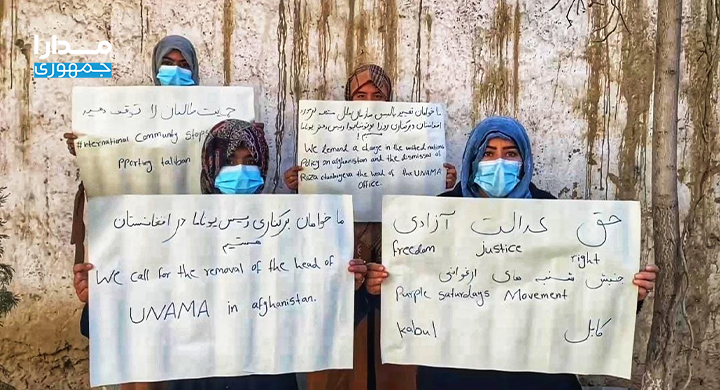 مدارا
جمهوری
حمایت طالبان را توقف دهید
#international Community Stops
pporting taliban
ما خواهان تغییر پالیسی سازمان ملل متحد در مورد
افغانستان و برکناری روزا
هستیم!
We demand a change in the united nations
Policy on afghanistan and the dismissal of
Roza
the head of the UNAMA
Office.
ما خواهان برکناری رییس یوناما در افغانستان
هستیم
We call for the removal of the head of
UNAMA in afghanistan.
حق عدالت آزادی
freedom justice right
جنبش شنبه های ارغوانی
Purple saturdays Movement
kabul کابل